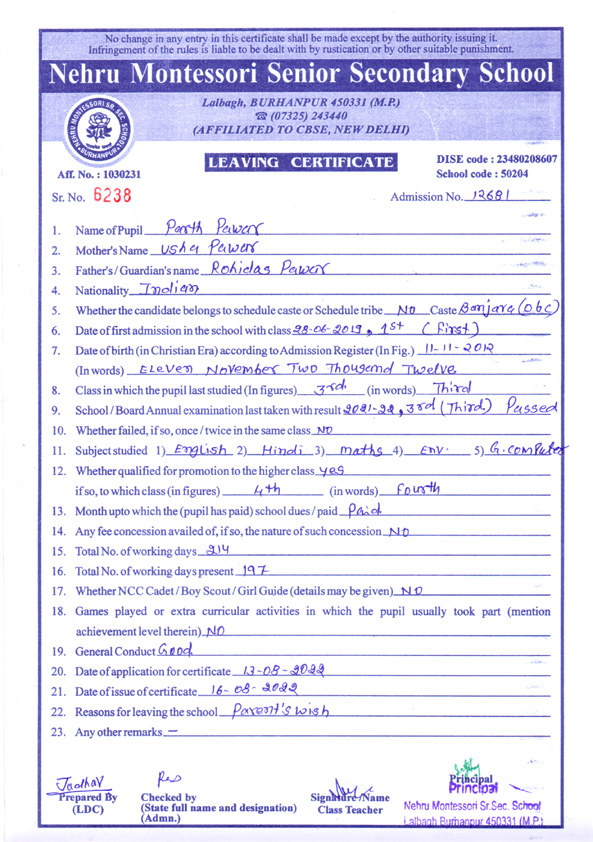 No change in any entry in this certificate shall be made except by the authority issuing it.
Infringement of the rules is liable to be dealt with by rustication or by other suitable punishment.
Nehru Montessori Senior Secondary School
Lalbagh, BURHANPUR 450331 (M.P.)
☎ (07325) 243440
(AFFILIATED TO CBSE, NEW DELHI)
NEHRU MONTESSORI SR. SEC. SCHOOL
BURHANPUR
LEAVING CERTIFICATE
DISE code : 23480208607
Aff. No. : 1030231 School code : 50204
Sr. No. 6238 Admission No. 12681
1. Name of Pupil Parth Pawar
2. Mother's Name Usha Pawar
3. Father's / Guardian's name Rohidas Pawar
4. Nationality Indian
5. Whether the candidate belongs to schedule caste or Schedule tribe NO Caste Banjara (obc)
6. Date of first admission in the school with class 28-06-2019, 1st (First)
7. Date of birth (in Christian Era) according to Admission Register (In Fig.) 11-11-2012
(In words) Eleven November Two Thousand Twelve
8. Class in which the pupil last studied (In figures) 3rd (in words) Third
9. School / Board Annual examination last taken with result 2021-22, 3rd (Third.) Passed
10. Whether failed, if so, once / twice in the same class NO
11. Subject studied 1) English 2) Hindi 3) maths 4) Env. 5) G.computer
12. Whether qualified for promotion to the higher class yes
if so, to which class (in figures) 4th (in words) Fourth
13. Month upto which the (pupil has paid) school dues / paid Paid
14. Any fee concession availed of, if so, the nature of such concession NO
15. Total No. of working days 214
16. Total No. of working days present 197
17. Whether NCC Cadet / Boy Scout / Girl Guide (details may be given) NO
18. Games played or extra curricular activities in which the pupil usually took part (mention
achievement level therein) NO
19. General Conduct Good
20. Date of application for certificate 13-08-2022
21. Date of issue of certificate 16-08-2022
22. Reasons for leaving the school Parent's wish
23. Any other remarks —
Jadhav
Prepared By
(LDC)
Checked by
(State full name and designation)
(Admn.)
Signature / Name
Class Teacher
Principal
Principal
Nehru Montessori Sr.Sec. School
Lalbagh Burhanpur 450331 (M.P.)